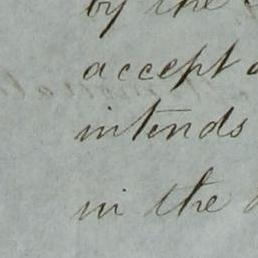 by the
accept
intends
in the